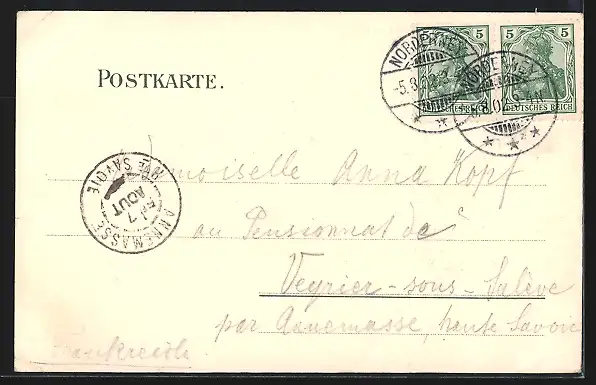 5 5
DEUTSCHES REICH
NORDERNEY
-5.8.02
NORDERNEY
5.8.02
POSTKARTE.
Mademoiselle Anna Kopf
au Pensionnat de
Veyrier-sous-Salève
par Annemasse, haute Savoie
Frankreich
ANNEMASSE
HTE SAVOIE
7
AOUT